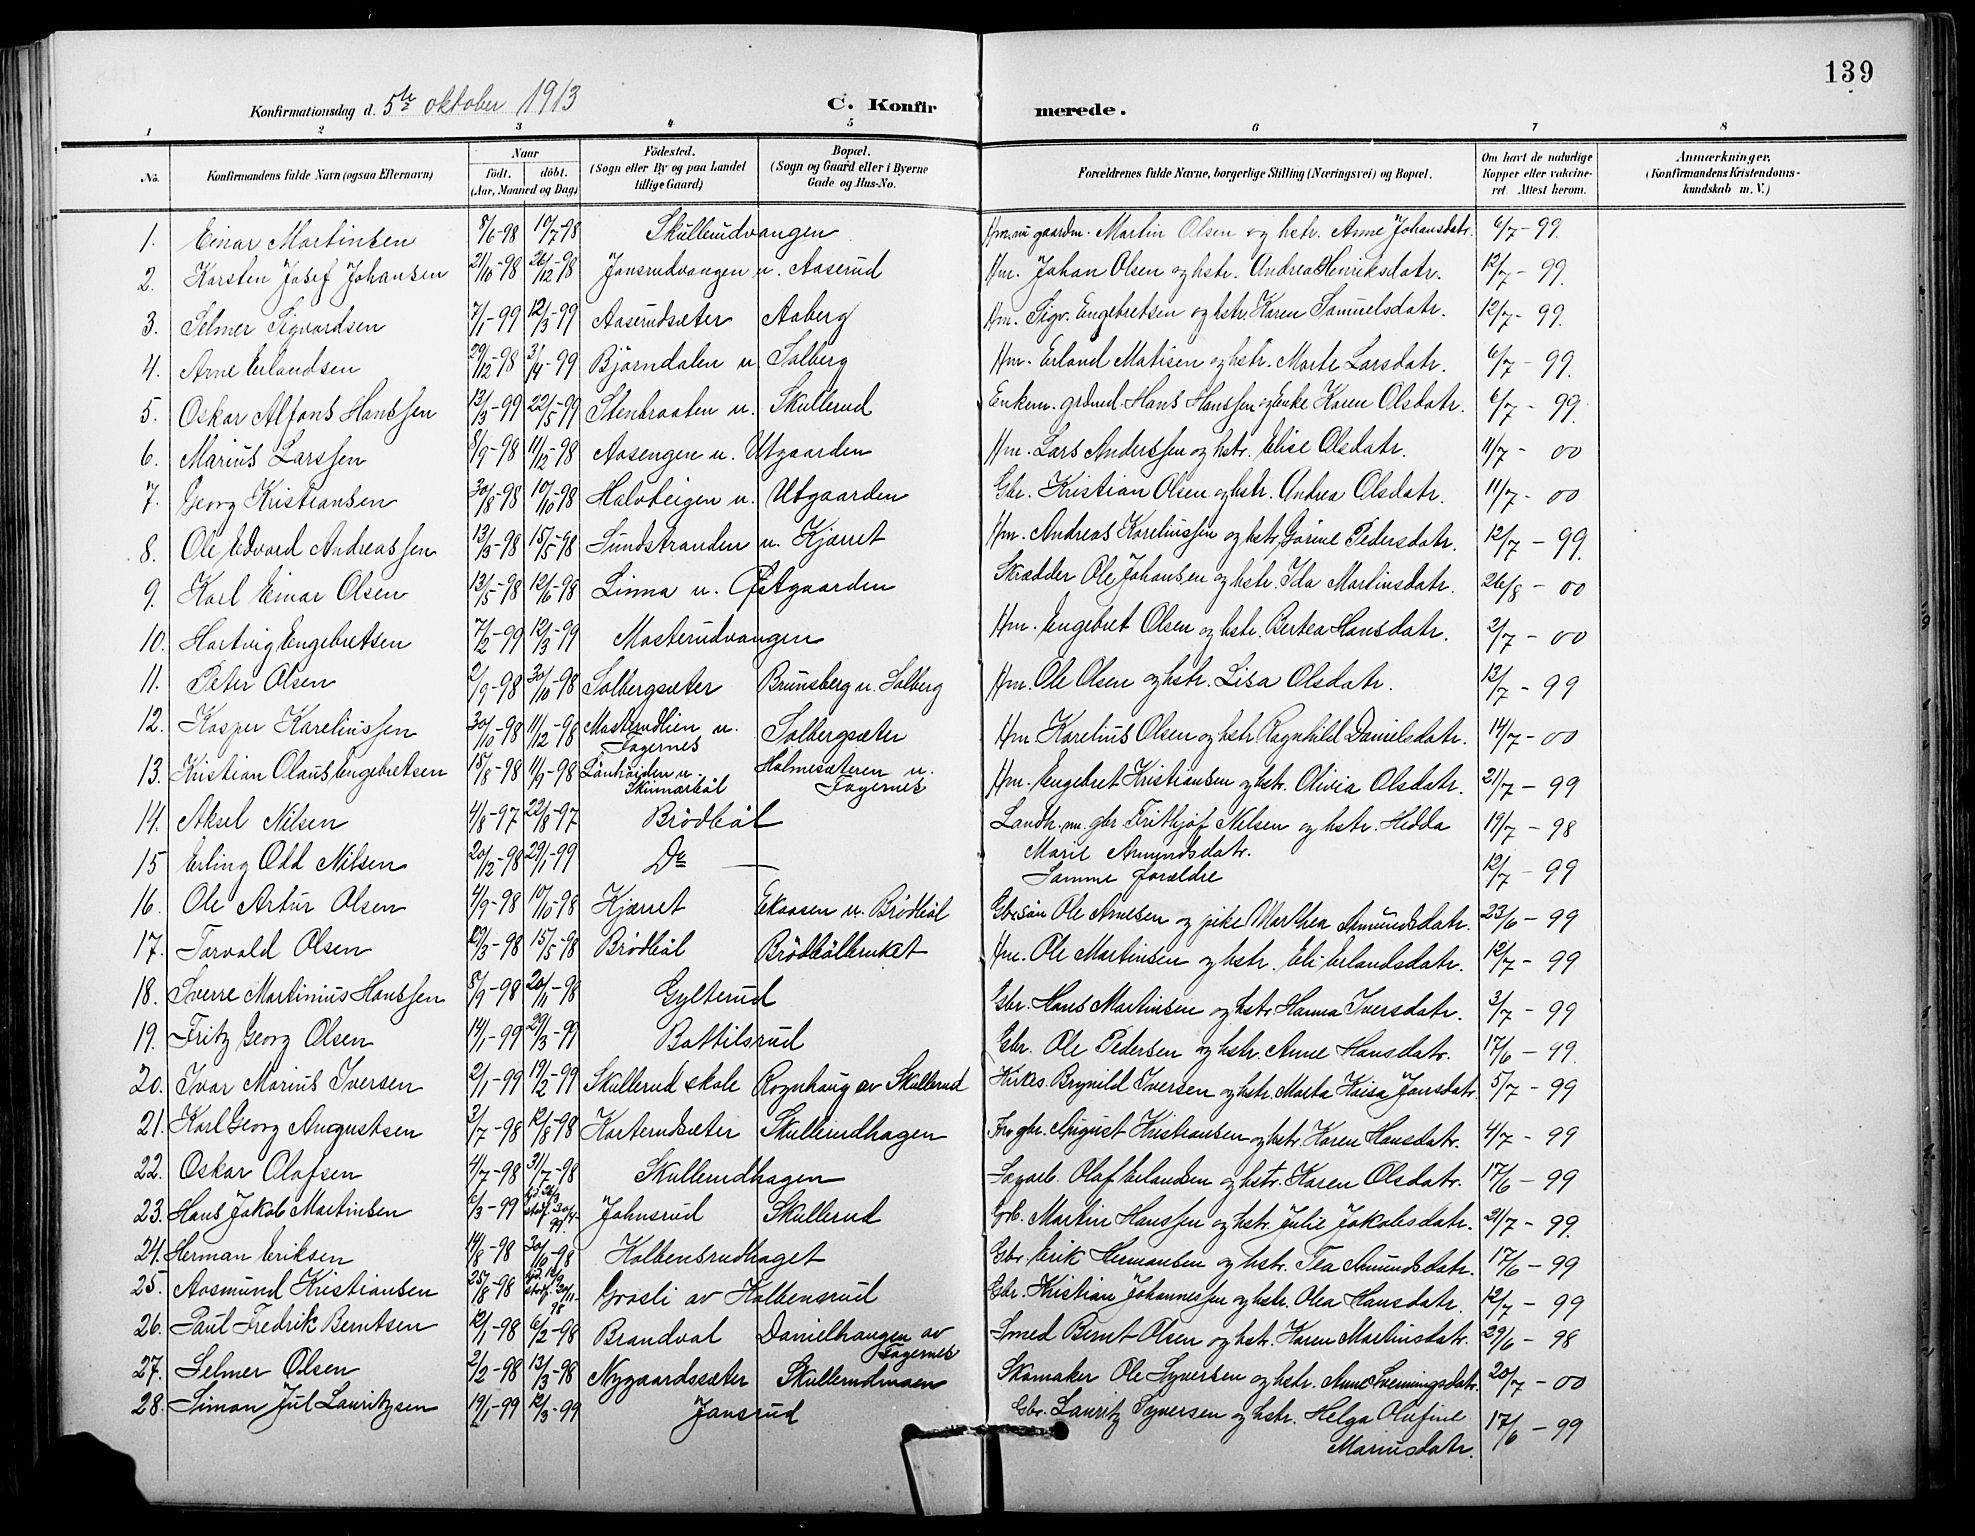 139
Konfirmationsdag d. 5te oktober 1913 C. Konfirmerede.
1 2 3 4 5 6 7 8
No. Konfirmandens fulde Navn (ogsaa Efternavn) Naar födt. döbt. (Aar, Maaned og Dag) Födested. (Sogn eller By og paa Landet tillige Gaard) Bopæl. (Sogn og Gaard eller i Byerne Gade og Hus-No. Forældrenes fulde Navne, borgerlige Stilling (Næringsvei) og Bopæl. Om havt de naturlige Kopper eller vakcineret. Attest herom. Anmærkninger, (Konfirmandens Kristendomskundskab m. V.)
1. Einar Martinsen 8/6-98 10/7-98 Skullerudvangen Hm. nu gaardm. Martin Olsen og hstr. Anne Johansdatr. 6/7-99.
2. Karsten Josef Johansen 21/10-98 26/12-98 Jonsrudvangen u. Aaserud Hm. Johan Olsen og hstr. Andrea Henriksdatr. 12/7-99.
3. Selmer Sigvardsen 7/1-99 12/3-99 Aaserudsæter Aaberg Hm. Sigv. Engebretsen og hstr. Karen Samuelsdatr. 12/7-99.
4. Arne Erlandsen 29/12-98 3/4-99 Björndalen u. Solberg Hm. Erland Matisen og hstr. Marte Larsdatr. 6/7-99.
5. Oskar Alfons Hanssen 13/3-99 22/5-99 Stenbraaten u. Skullerud Enkem. grdmd. Hans Hanssen og Enke Karen Olsdatr. 6/7-99.
6. Marius Larssen 8/9-98 11/12-98 Aasengen u. Utgaarden Hm. Lars Anderssen og hstr. Elise Olsdatr. 11/7-00
7. Georg Kristiansen 30/8-98 10/10-98 Halvteigen u. Utgaarden Gbr. Kristian Olsen og hstr. Andrea Olsdatr. 11/7-00
8. Ole Edvard Andreassen 13/3-98 15/5-98 Sundstranden u. Kjærret Hm. Andreas Kareliussen og hstr. Gorine Pedersdatr. 12/7-99.
9. Karl Einar Olsen 13/5-98 12/6-98 Linna u. Östgaarden Skrædder Ole Johansen og hstr. Ida Martinsdatr. 26/8-00
10. Hartvig Engebretsen 7/2-99 12/3-99 Masterudvangen Hm. Engebret Olsen og hstr. Bertea Hansdatr. 2/7-00
11. Peter Olsen 2/9-98 30/10-98 Solbergsæter Brunsberg u. Solberg Hm. Ole Olsen og hstr. Lisa Olsdatr. 12/7-99
12. Kasper Kareliussen 30/10-98 11/12-98 Masterudlien u. Fagernes Solbergsæter Hm Karelius Olsen og hstr Ragnhild Danielsdatr. 14/7-00
13. Kristian Olaus Engebretsen 15/8-98 11/9-98 Lönhöiden u. Skinnarböl Holmesæteren u. Fagernes Hm. Engebret Kristiansen og hstr. Olivia Olsdatr. 21/7-99
14. Aksel Nilsen 4/8-97 22/8-97 Brödböl Landh. nu gbr. Frithjof Nilsen og hstr. Hedda 19/7-98
Marie Amundsdatr.
15 Erling Odd Nilsen 20/12-98 29/1-99 Do — Samme forældre 12/7-99
16. Ole Artur Olsen 4/9-98 10/10-98 Kjærret Ekaasen u. Brödböl Gbrsön Ole Arnesen og pike Marthea Amundsdatr. 23/6-99
17. Torvald Olsen 29/3-98 15/5-98 Brödböl Brödbölbruket Hm. Ole Martinsen og hstr. Eli Erlandsdatr. 12/7-99
18. Sverre Martinius Hanssen 8/9-98 20/11-98 Gylterud Gbr. Hans Martinsen og hstr Hanna Iversdatr. 3/7-99
19. Fritz Georg Olsen 14/1-99 29/3-99 Battilsrud Gbr. Ole Pedersen og hstr. Anne Hansdatr. 17/6-99.
20. Ivar Marius Iversen 2/1-99 19/2-99 Skullerud skole Rognhaug av Skullerud Kirkes. Brynild Iversen og hstr. Marta Kaisa Jonsdatr 5/7-99
21. Karl Georg Augustsen 3/7-98 12/8-98 Karterudsæter Skullerudhagen Frv gbr. August Kristiansen og hstr. Karen Hansdatr. 4/7-99
22. Oskar Olafsen 4/7-98 31/7-98 Skullerudhagen Sagarb. Olaf Erlandsen og hstr. Karen Olsdatr. 17/6-99
23. Hans Jakob Martinsen 6/3-99 hjd. 26/3 stadf. 30/4-99 Johnsrud Skullerud Grb. Martin Hanssen og hstr. Julie Jakobsdatr. 21/7-99.
24. Herman Eriksen 14/8-98 30/10-98 Kolbensrudhaget Gbr. Erik Hermansen og hstr. Tea Amundsdatr. 17/6-99
25. Aasmund Kristiansen 25/8-98 Grosli av Kolbensrud Gbr. Kristian Johannessen og hstr. Olea Hansdatr. 12/7-99
26. Paul Fredrik Berntsen 12/1-98 6/2-98 Brandval Danielhaugen av Fagernes Smed Bernt Olsen og hstr. Karen Martinsdatr. 29/6-98
27. Selmer Olsen 2/2-98 13/3-98 Nygaardssæter Skullerudmoen Skomaker Ole Syversen og hstr. Anne Svenningsdatr. 20/7-00
28. Simon Jul Lauritzsen 19/1-99 12/3-99 Jansrud Gbr. Lauritz Syversen og hstr. Helga Olufine 17/6-99
Mariusdatr.